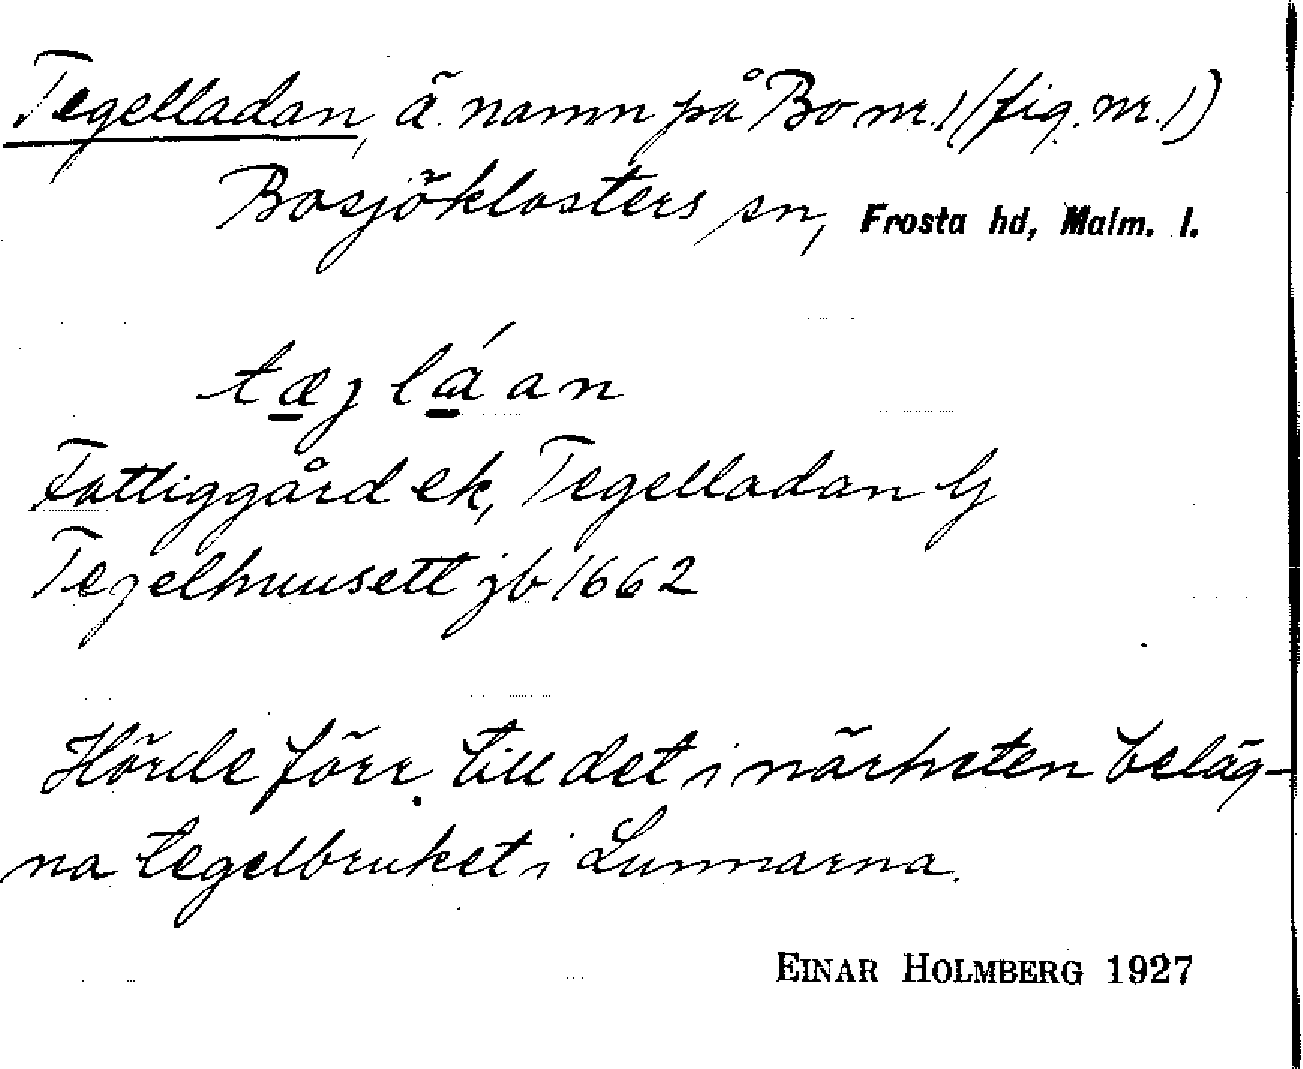 Tegelladan, ä. namn på Bo nr. 1 (fig. nr. 1)
Bosjöklosters sn, Frosta hd, Malm. l.
tæjláan
Fattiggård ek, Tegelladan G
Tegelhuusett jb 1662
Hörde förr. till det i närheten beläg-
na tegelbruket i Lunnarna.
EINAR HOLMBERG 1927